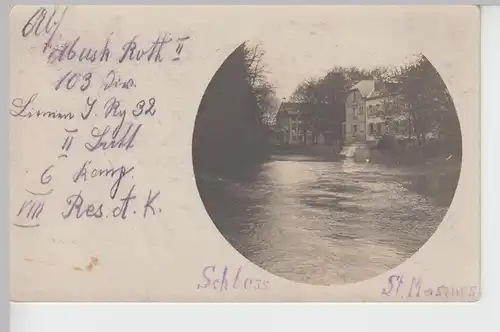 Abs.
Mush Roth II
103 Div.
Linien I. Rg 32
II Batl
6 Komp.
VIII Res. A. K.
Schloss
St.